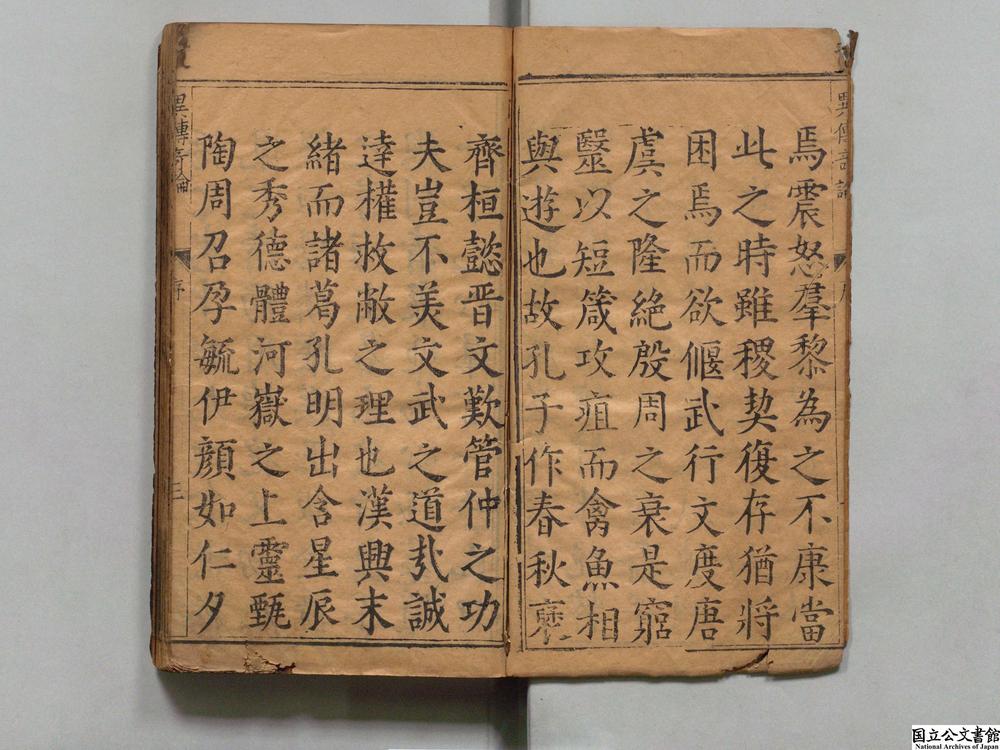 焉震怒羣黎為之不康當
此之時雖稷契復存猶將
困焉而欲偃武行文度唐
虞之隆絶殷周之衰是窮
毉以短箴攻疽而禽魚相
與遊也故孔子作春秋褒
齊桓懿晋文歎管仲之功
夫豈不美文武之道㢤誠
達權救敝之理也漢興末
緒而諸葛孔明出含星辰
之秀德體河嶽之上靈甄
陶周召孕毓伊顔如仁夕
序
三
国立公文書館
National Archives of Japan